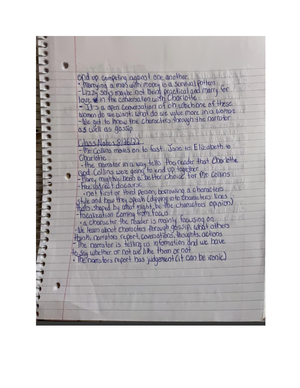 end up competing against one another.
• Marrying a man with money is a survival pattern
- Lizzy says maybe not being practical and marry for
love in the conversation with Charlotte
• It's a open conversation of objections of these
women do we want what do we value more in a woman
• We get to know the characters through the narrator
as well as gossip
Class Notes 9/26/22
• Mr. Collins moved on so fast. Jane to Elizabeth to
Charlotte.
- The narrator in a way tells the reader that Charlotte
and Collins were going to end up together.
• Mary might've been a better choice for Mr. Collins
• Free indirect discourse
- not first or third person, borrowing a characters
style and how they speak (dipping into characters lives
that's shaped by what might be the characters opinion)
• Focalization coming from focus
- a character the reader is mainly focusing on
• We learn about characters through gossip, what others
think, narrators report, conversations, thoughts, actions
• The narrator is telling us information and we have
to say whether or not we like them or not.
• The narrators report has judgement (it can be ironic)